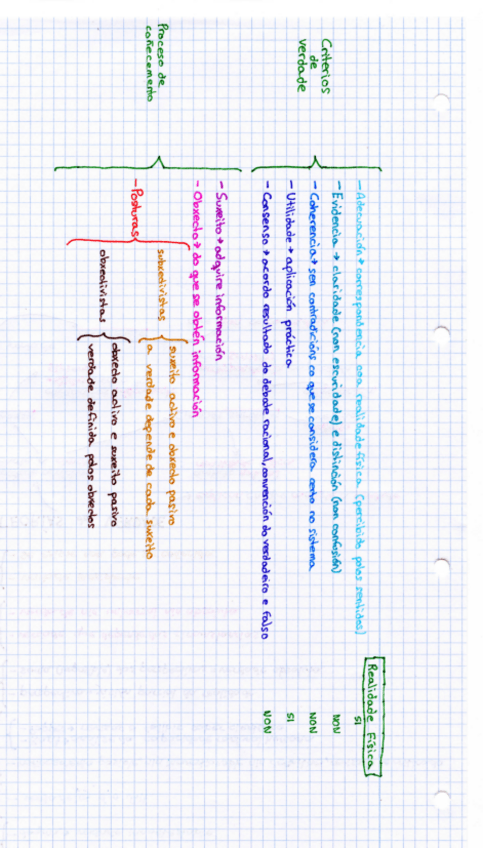 Realidade Física
Criterios
de
verdade
- Adecuación → correspondencia coa realidade física (percibida polos sentidos) SI
- Evidencia → claridade (non escuridade) e distinción (non confusión) NON
- Coherencia → sen contradicións co que se considera certo no sistema NON
- Utilidade → aplicación práctica SI
- Consenso → acordo resultado do debate racional, convención do verdadeiro e falso NON
Proceso de
coñecemento
- Suxeito → adquire información
- Obxecto → do que se obtén información
- Posturas
subxectivistas
suxeito activo e obxecto pasivo
a verdade depende de cada suxeito
obxectivistas
obxecto activo e suxeito pasivo
verdade definida polos obxectos